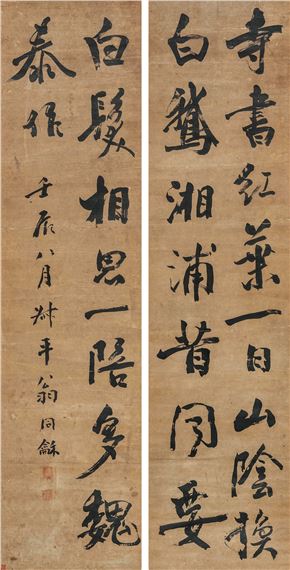 寺書紅葉一日山陰換
白鵝湘浦昔同要
白髮相思一陪多魏
泰作
壬辰八月叔平翁同龢